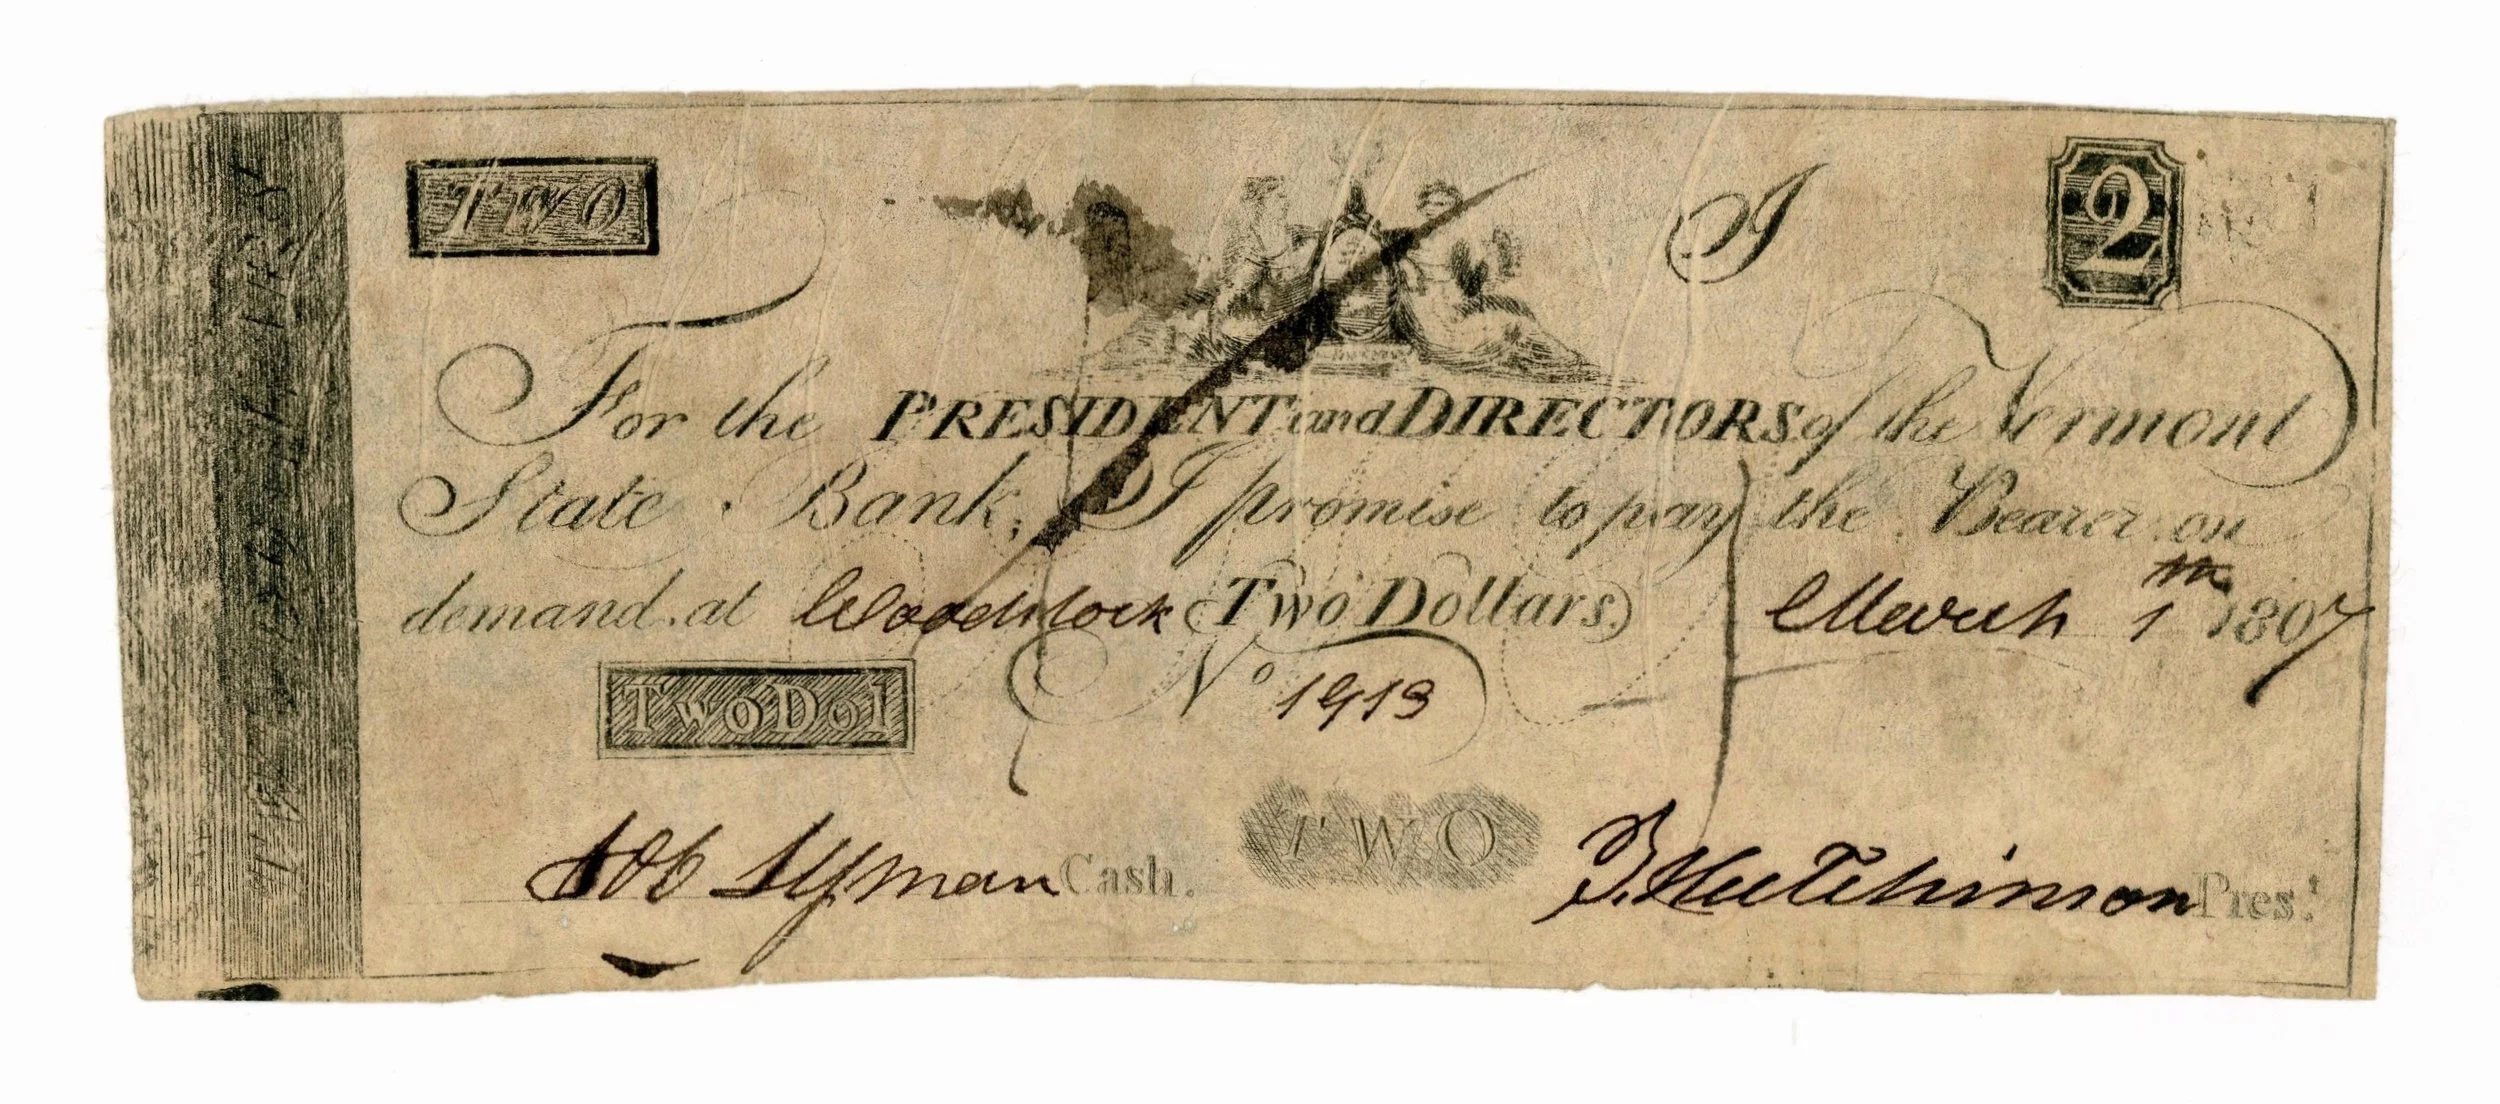 TWO
I
2
For the PRESIDENT and DIRECTORS of the Vermont
State Bank, I promise to pay the Bearer on
demand at Woodstock (Two Dollars) March 1th 1807
TwoDol
No 1913
Job Lyman Cash.
TWO
T. Hutchinson Pres.t